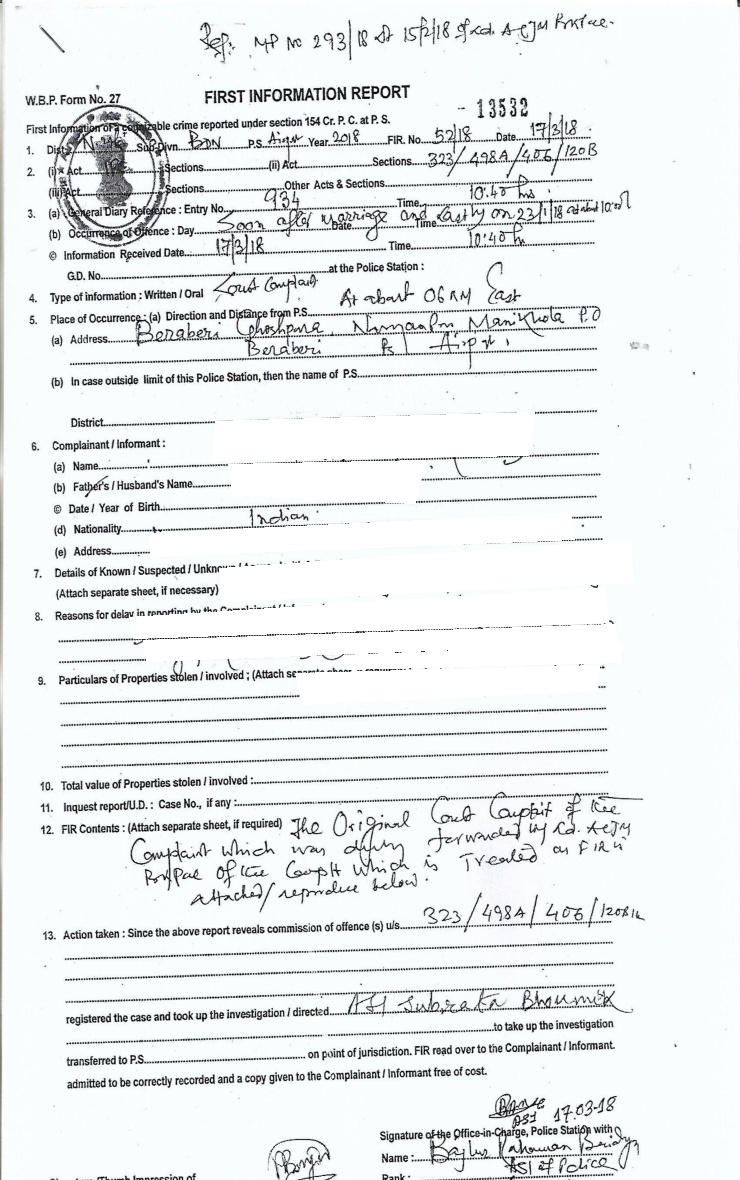 Ref: MP No 293/18 dt 15/2/18 of Ld. ACJM
W.B.P. Form No. 27
FIRST INFORMATION REPORT
- 13532
First Information of a cognizable crime reported under section 154 Cr. P. C. at P. S.
1. Dist. Sub-Divn. BDN P.S. Airport Year 2018 FIR. No. 52/18 Date 17/3/18
2. (i) Act Sections (ii) Act Sections 323/498A/406/120B
(iii) Act Sections Other Acts & Sections
3. (a) General Diary Reference : Entry No. 934 Time 10.40 hrs
(b) Occurrence of Offence : Day Soon after marriage and lastly on 23/1/18 Date Time
© Information Received Date 17/3/18 Time 10:40 hr
G.D. No. at the Police Station :
4. Type of information : Written / Oral Court Complaint
At about 06 KM East
5. Place of Occurrence : (a) Direction and Distance from P.S.
(a) Address Beraberi Ghoshpara, Manikhola P.O
Beraberi PS Airport.
(b) In case outside limit of this Police Station, then the name of P.S.
District
6. Complainant / Informant :
(a) Name
(b) Father's / Husband's Name
© Date / Year of Birth
(d) Nationality Indian
(e) Address
7. Details of Known / Suspected /
(Attach separate sheet, if necessary)
8. Reasons for delay in reporting by the
9. Particulars of Properties stolen / involved ; (Attach
10. Total value of Properties stolen / involved :
11. Inquest report/U.D. : Case No., if any :
12. FIR Contents : (Attach separate sheet, if required) The Original Court Complaint of the
Complaint which was duly forwarded by Ld. ACJM
of the which is Treated as FIR is
attached/reproduce below.
13. Action taken : Since the above report reveals commission of offence (s) u/s. 323/498A/406/120B
registered the case and took up the investigation / directed ASI Subrata Bhoumik
to take up the investigation
transferred to P.S. on point of jurisdiction. FIR read over to the Complainant / Informant.
admitted to be correctly recorded and a copy given to the Complainant / Informant free of cost.
ASI 17.03-18
Signature of the Office-in-Charge, Police Station with
Name :
ASI of Police
Rank :